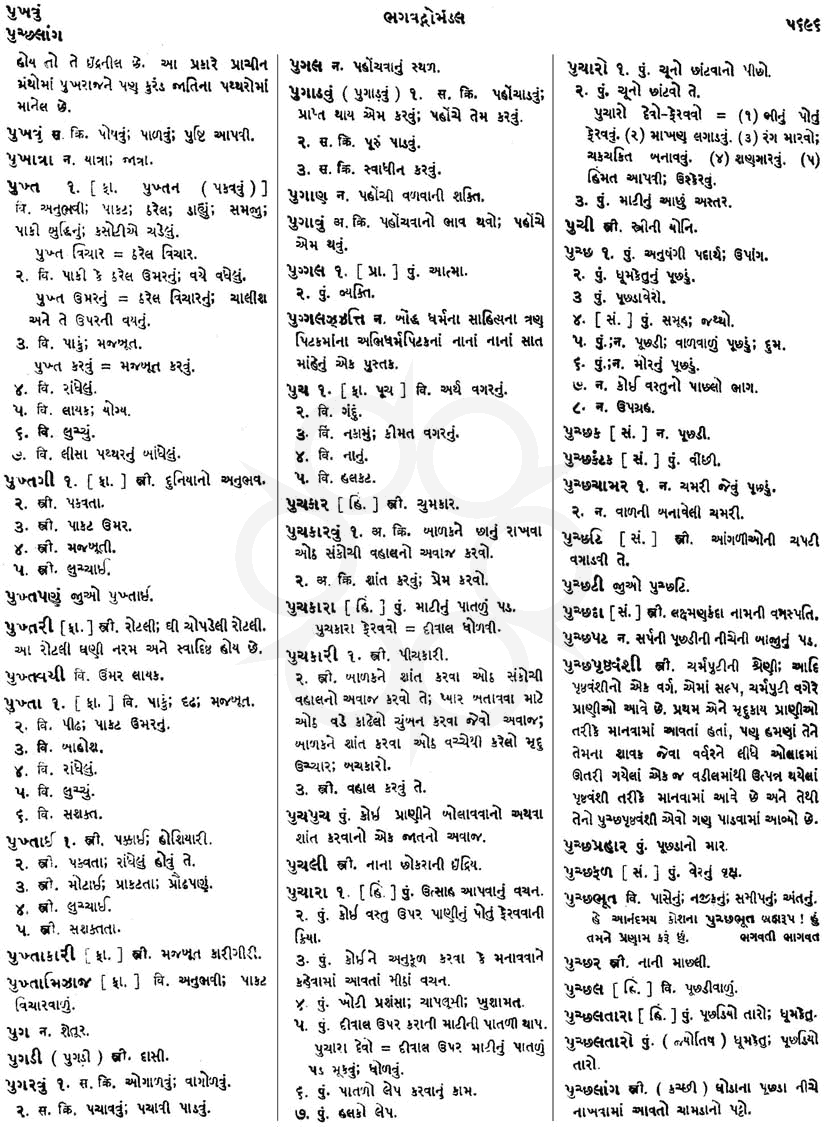 પુખવું
પુચ્છલાંગ
ભગવદ્ગોમંડલ
૫૬૯૬
હોય તો તે ઇંદ્રનીલ છે. આ પ્રકારે પ્રાચીન
ગ્રંથોમાં પુખરાજને પણ કુરંડ જાતિના પથ્થરોમાં
માનેલ છે.
પુખવું સ. ક્રિ. પોષવું; પાળવું; પુષ્ટિ આપવી.
પુખાત્રા ન. યાત્રા; જાત્રા.
પુખ્ત ૧. [ ફા. પુખ્તન ( પકવવું ) ]
વિ. અનુભવી; પાકટ; ઠરેલ; ડાહ્યું; સમજુ;
પાકી બુદ્ધિનું; કસોટીએ ચડેલું.
પુખ્ત વિચાર = ઠરેલ વિચાર.
૨. વિ. પાકી કે ઠરેલ ઉમરનું; વયે વધેલું.
પુખ્ત ઉમરનું = ઠરેલ વિચારનું; ચાલીશ
અને તે ઉપરની વયનું.
૩. વિ. પાકું; મજબૂત.
પુખ્ત કરવું = મજબૂત કરવું.
૪. વિ. રાંધેલું.
૫. વિ. લાયક; યોગ્ય.
૬. વિ. લુચ્ચું.
૭. વિ. લીસા પથ્થરનું બાંધેલું.
પુખ્તગી ૧. [ ફા. ] સ્ત્રી. દુનિયાનો અનુભવ.
૨. સ્ત્રી. પકવતા.
૩. સ્ત્રી. પાકટ ઉમર.
૪. સ્ત્રી. મજબૂતી.
૫. સ્ત્રી. લુચ્ચાઈ.
પુખ્તપણું જુઓ પુખ્તાઈ.
પુખ્તરી [ ફા. ] સ્ત્રી. રોટલી; ઘી ચોપડેલી રોટલી.
આ રોટલી ઘણી નરમ અને સ્વાદિષ્ઠ હોય છે.
પુખ્તવચી વિ. ઉમર લાયક.
પુખ્તા ૧. [ ફા. ] વિ. પાકું; દૃઢ; મજબૂત.
૨. વિ. પીઢ; પાકટ ઉમરનું.
૩. વિ. બાહોશ.
૪. વિ. રાંધેલું.
૫. વિ. લુચ્ચું.
૬. વિ. સશક્ત.
પુખ્તાઈ ૧. સ્ત્રી. પક્કાઈ; હોશિયારી.
૨. સ્ત્રી. પકવતા; રાંધેલું હોવું તે.
૩. સ્ત્રી. મોટાઈ; પ્રાકટતા; પ્રૌઢપણું.
૪. સ્ત્રી. લુચ્ચાઈ.
૫. સ્ત્રી. સશક્તતા.
પુખ્તાકારી [ ફા. ] સ્ત્રી. મજબૂત કારીગીરી.
પુખ્તામિઝાજ [ ફા. ] વિ. અનુભવી; પાકટ
વિચારવાળું.
પુગ ન. શેતૂર.
પુગડી ( પુગડ઼ી ) સ્ત્રી. દાસી.
પુગરવું ૧. સ. ક્રિ. ઓગાળવું; વાગોળવું.
૨. સ. ક્રિ. પચાવવું; પચાવી પાડવું.
પુગલ ન. પહોંચવાનું સ્થળ.
પુગાડવું ( પુગાડ઼વું ) ૧. સ. ક્રિ. પહોંચાડવું;
પ્રાપ્ત થાય એમ કરવું; પહોંચે તેમ કરવું.
૨. સ. ક્રિ. પૂરું પાડવું.
૩. સ. ક્રિ. સ્વાધીન કરવું.
પુગાણ ન. પહોંચી વળવાની શક્તિ.
પુગાવું અ. ક્રિ. પહોંચવાનો ભાવ થવો; પહોંચે
એમ થવું.
પુગ્ગલ ૧. [ પ્રા. ] પું. આત્મા.
૨. પું. વ્યક્તિ.
પુગ્ગલઝ્ઝત્તિ ન. બૌદ્ધ ધર્મના સાહિત્યના ત્રણ
પિટકમાંના અભિધર્મપિટકનાં નાનાં નાનાં સાત
માંહેનું એક પુસ્તક.
પુચ ૧. [ ફા. પૂચ ] વિ. અર્થ વગરનું.
૨. વિ. ગંદું.
૩. વિ. નકામું; કીમત વગરનું.
૪. વિ. નાનું.
૫. વિ. હલકટ.
પુચકાર [ હિં. ] સ્ત્રી. ચુમકાર.
પુચકારવું ૧. અ. ક્રિ. બાળકને છાનું રાખવા
ઓઠ સંકોચી વહાલનો અવાજ કરવો.
૨. અ. ક્રિ. શાંત કરવું; પ્રેમ કરવો.
પુચકારા [ હિં. ] પું. માટીનું પાતળું પડ.
પુચકારા ફેરવવો = દીવાલ ધોળવી.
પુચકારી ૧. સ્ત્રી. પીચકારી.
૨. સ્ત્રી. બાળકને શાંત કરવા ઓઠ સંકોચી
વહાલનો અવાજ કરવો તે; પ્યાર બતાવવા માટે
ઓઠ વડે કાઢેલો ચુંબન કરવા જેવો અવાજ;
બાળકને શાંત કરવા ઓઠ વચ્ચેથી કરેલો મૃદુ
ઉચ્ચાર; બચકારો.
૩. સ્ત્રી. વહાલ કરવું તે.
પુચપુચ પું. કોઈ પ્રાણીને બોલાવવાનો અથવા
શાંત કરવાનો એક જાતનો અવાજ.
પુચલી સ્ત્રી. નાના છોકરાની ઇંદ્રિય.
પુચારા ૧. [ હિં. ] પું. ઉત્સાહ આપવાનું વચન.
૨. પું. કોઈ વસ્તુ ઉપર પાણીનું પોતું ફેરવવાની
ક્રિયા.
૩. પું. કોઈને અનુકૂળ કરવા કે મનાવવાને
કહેવામાં આવતાં મીઠાં વચન.
૪. પું. ખોટી પ્રશંસા; ચાપલૂસી; ખુશામત.
૫. પું. દીવાલ ઉપર કરાતી માટીની પાતળી થાપ.
પુચારા દેવો = દીવાલ ઉપર માટીનું પાતળું
પડ મૂકવું; ધોળવું.
૬. પું. પાતળો લેપ કરવાનું કામ.
૭. પું. હલકો લેપ.
પુચારો ૧. પું. ચૂનો છાંટવાનો પીછો.
૨. પું. ચૂનો છાંટવો તે.
પુચારો દેવો-ફેરવવો = (૧) ભીનું પોતું
ફેરવવું. (૨) માખણ લગાડવું. (૩) રંગ મારવો;
ચકચકિત બનાવવું. (૪) શણગારવું. (૫)
હિંમત આપવી; ઉશ્કેરવું.
૩. પું. માટીનું આછું અસ્તર.
પુચી સ્ત્રી. સ્ત્રીની યોનિ.
પુચ્છ ૧. પું. અનુષંગી પદાર્થ; ઉપાંગ.
૨. પું. ધૂમકેતુનું પૂછડું.
૩ પું. પૂછડાવેરો.
૪. [ સં. ] પું. સમૂહ; જથ્થો.
૫. પું.;ન. પૂછડી; વાળવાળું પૂછડું; દુમ.
૬. પું.;ન. મોરનું પૂછડું.
૭. ન. કોઈ વસ્તુનો પાછલો ભાગ.
૮. ન. ઉપગ્રહ.
પુચ્છક [ સં. ] ન. પૂછડી.
પુચ્છકંટક [ સં. ] પું. વીંછી.
પુચ્છચામર ૧. ન. ચમરી જેવું પૂછડું.
૨. ન. વાળની બનાવેલી ચમરી.
પુચ્છટિ [ સં. ] સ્ત્રી. આંગળીઓની ચપટી
વગાડવી તે.
પુચ્છટી જુઓ પુચ્છટિ.
પુચ્છદા [ સં. ] સ્ત્રી. લક્ષ્મણકંદા નામની વનસ્પતિ.
પુચ્છપટ ન. સર્પની પૂછડીની નીચેની બાજુનું પડ.
પુચ્છપૃષ્ઠવંશી સ્ત્રી. ચર્મપુટીની શ્રેણી; આદિ
પૃષ્ઠવંશીનો એક વર્ગ. એમાં સલ્પ, ચર્મપુટી વગેરે
પ્રાણીઓ આવે છે. પ્રથમ એને મૃદુકાય પ્રાણીઓ
તરીકે માનવામાં આવતાં હતાં, પણ હમણાં તેને
તેમના શાવક જેવા વર્વરને લીધે ઓલાદમાં
ઊતરી ગયેલાં એક જ વડીલમાંથી ઉત્પન્ન થયેલાં
પૃષ્ઠવંશી તરીકે માનવામાં આવે છે અને તેથી
તેનો પુચ્છપૃષ્ઠવંશી એવો ગણ પાડવામાં આવ્યો છે.
પુચ્છપ્રહાર પું. પૂછડાનો માર.
પુચ્છફળ [ સં. ] પું. વેરનું વૃક્ષ.
પુચ્છભૂત વિ. પાસેનું; નજીકનું; સમીપનું; અંતનું.
હે આનંદમય કોશના પુચ્છભૂત બ્રહ્મરૂપ ! હું
તમને પ્રણામ કરૂં છું. ભગવતી ભાગવત
પુચ્છર સ્ત્રી. નાની માછલી.
પુચ્છલ [ હિં. ] વિ. પૂછડીવાળું.
પુચ્છલતારા [ હિં. ] પું. પૂછડિયો તારો; ધૂમકેતુ.
પુચ્છલતારો પું. ( જ્યોતિષ ) ધૂમકેતુ; પૂછડિયો
તારો.
પુચ્છલાંગ સ્ત્રી. ( કચ્છી ) ઘોડાના પૂછડા નીચે
નાખવામાં આવતો ચામડાનો પટ્ટો.